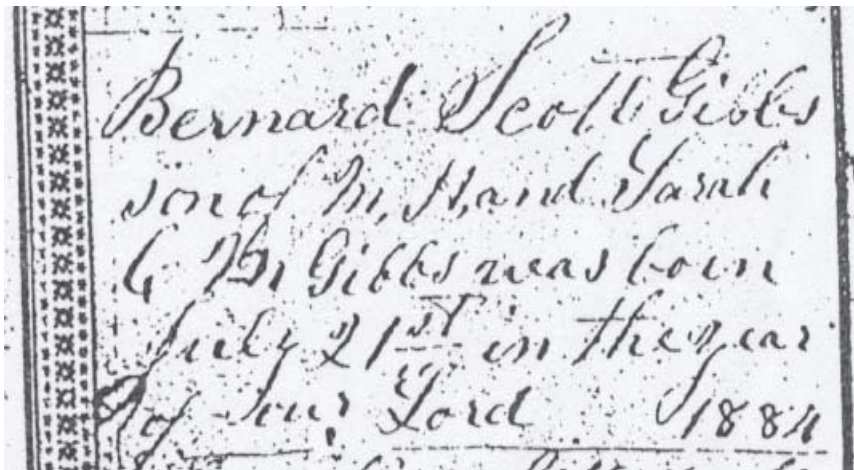 Bernard Scott Gibbs
son of M. H. and Sarah
Gibbs was born
July 21st in the year
of our Lord 1884